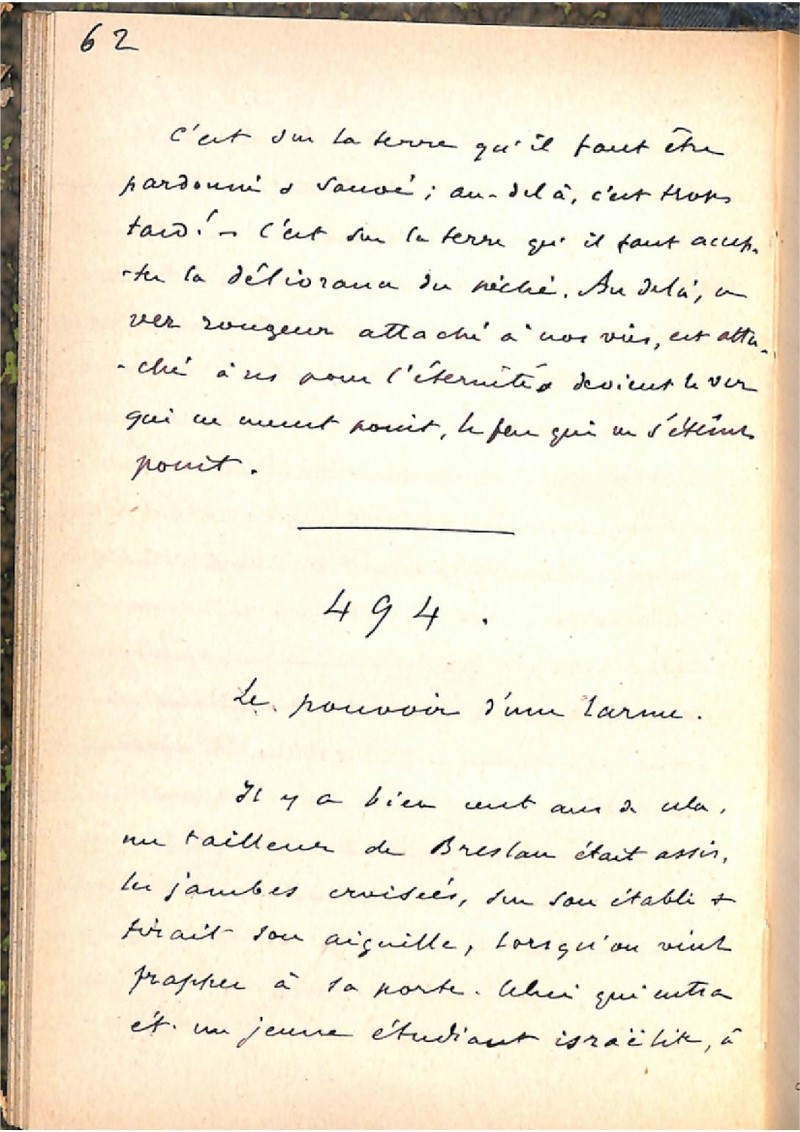 62
C'est sur la terre qu'il faut être
pardonné & sauvé ; au-delà, c'est trop
tard ! – C'est sur la terre qu'il faut accep-
-ter la délivrance du péché. Au delà, ce
ver rongeur attaché à nos vies, est atta-
-ché à ns pour l'éternité & devient le ver
qui ne meurt point, le feu qui ne s'éteint
point.
494.
Le pouvoir d'une larme.
Il y a bien cent ans de cela,
un tailleur de Breslau était assis,
les jambes croisées, sur son établi &
tirait son aiguille, lorsqu'on vint
frapper à sa porte. Celui qui entra
ét. un jeune étudiant israëlite, à